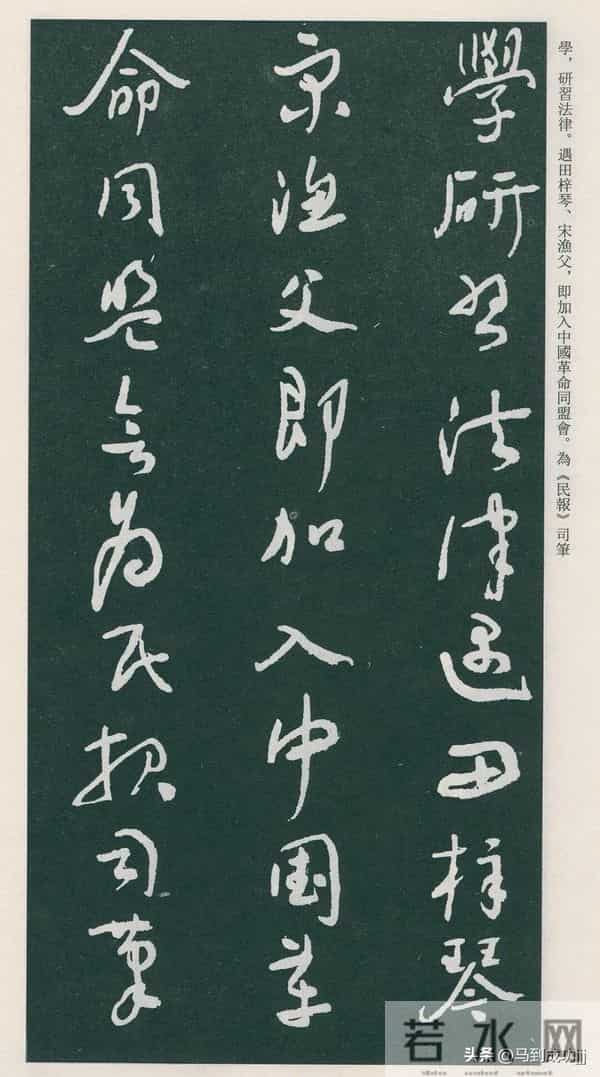 學，研習法律。遇田梓琴、宋漁父，即加入中國革命同盟會。為《民報》司筆
學研習法律遇田梓琴
宋漁父即加入中国革
命同盟會為民報司筆
若水网
头条@马到成功jjj